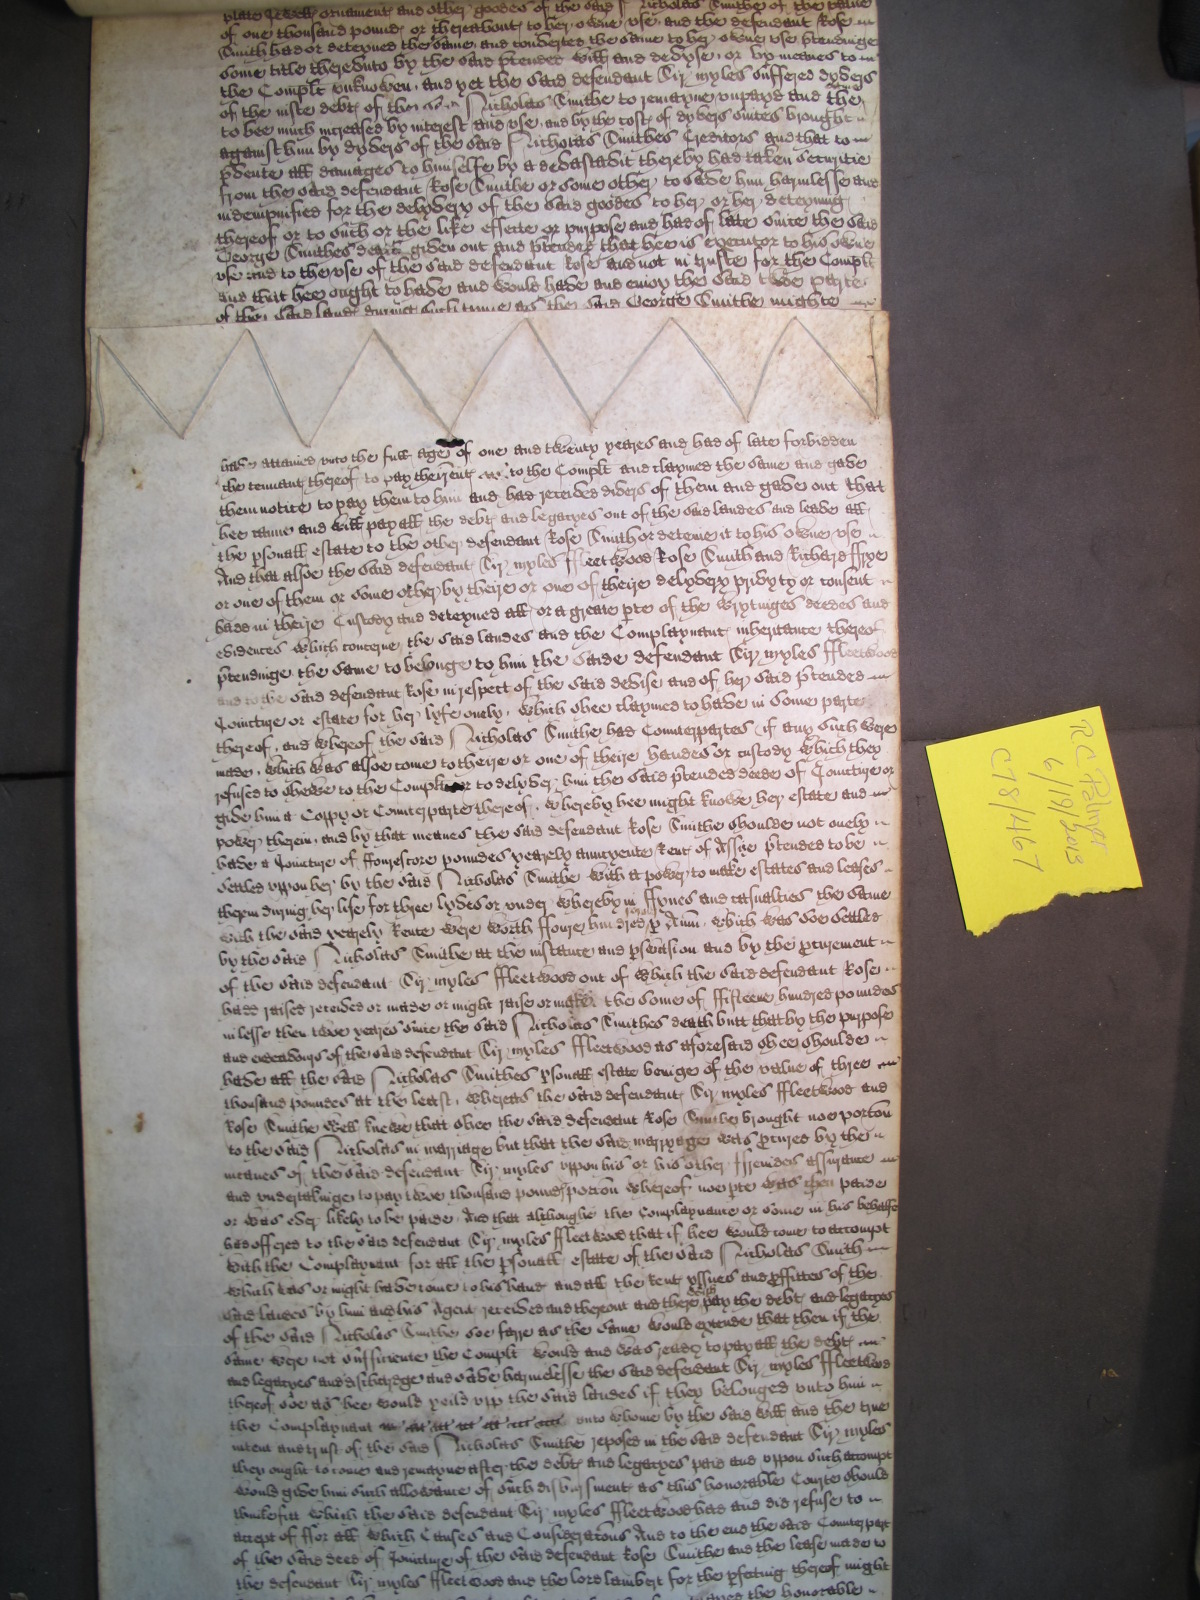 plate Jewells ornamentes and other goodes of the said Nicholas Smithe of the value
of one thousand poundes or thereaboutes to her owne use, and the defendant Rose
Smith had or deteyned the same, and converted the same to her owne use ptendinge
some title thereunto by the said ptended will and devyse, or by meanes to
the Complt unknowen, and yet the said defendant Sir Myles suffered dyvers
of the iuste debtes of the said Nicholas Smithe to remayne unpayd and the
to bee much increased by interest and use, and by the costes of dyvers suites brought
against him by dyvers of the said Nicholas Smithes Creditors and that to
pvente all damages to himselfe by a devastavit thereby had taken securitie
from the said defendant Rose Smithe or some other to save him harmlesse and
indempnified for the delyvery of the said goodes to her or her deteyning
thereof or to such or the like effecte or purpose and had of late since the said
George Smithes death given out and ptended that hee is executor to his owne
use and to the use of the said defendant Rose and not in truste for the Complt
and that hee ought to have and would have and enioy the said two partes
of the said landes during such tyme as the said George Smithe mighte
have attained unto the full age of one and twenty yeares and had of late forbidden
the tennant thereof to pay the rent to the Complt and claymed the same and gave
them notice to pay them to him and had received divers of them and gave out that
hee cann and will pay all the debtes and legacyes out of the said landes and leave all
the psonall estate to the other defendant Rose Smith or deteine it to his owne use
And that alsoe the said defendant Sir Myles Fleetwood Rose Smith and Richard Frye
or one of them or some other by theire or one of theire delyvery privyty or consent
hadd in theire Custody and deteyned all or a greate pte of the wrytinges deedes and
evidences which concerne the said landes and the Complaynant inheritance thereof
ptendinge the same to belonge to him the saide defendant Sir Myles ffleetwood
and to the said defendant Rose in respect of the said devise and of her said ptended
Joincture or estate for her lyfe onely, which shee claymed to have in some parte
thereof, and whereof the said Nicholas Smithe had Counterpartes if any such were
made, which was alsoe come to theire or one of theire handes or custody which they
refused to shewe to the Complt or to delyver him the said ptended deede of Joincture or
give him a Coppy or Counterparte thereof, whereby hee might knowe her estate and
power therein, and by that meanes the said defendant Rose Smithe shoulde not onely
have a Joincture of ffourescore poundes yearely auncyente Rent of Assise ptended to be
setled uppon her by the said Nicholas Smithe with a power to make estates and leases
therein during her life for three lyves or under whereby in ffynes and casualties the same
with the said yearely Rente were worth ffoure hundred p Annu, which was soe setled
by the said Nicholas Smithe at the instance and pswasion and by the pcurement
of the said defendant Sir Myles ffleetwood out of which the said defendant Rose
hadd raised received or made or might raise or make the some of ffifteene hundred poundes
in lesse then twoe yeares since the said Nicholas Smithes death butt that by the purpose
and endeavours of the said defendant Sir Myles ffleetwood as aforesaid shee shoulde
have all the said Nicholas Smithes psonall estate beinge of the value of three
thousand poundes at the least, whereas the said defendantes Sir Myles ffleetwood and
Rose Smithe well knewe that shee the said defendant Rose Smithe brought noe porton
to the said Nicholas in marriage but that the said marryage was pcured by the
meanes of the said defendant Sir Myles uppon his or his other ffreindes assurance
and undertakinge to pay twoe thousand poundes porton whereof noe pte was then paide
or was ever likely to be paide, And that althoughe the Complaynante or some in his behalfe
had offered to the said defendant Sir Myles ffleetwood that if hee would come to accompt
with the Complaynant for all the psonall estate of the said Nicholas Smith
which was or might have come to his hand and all the Rent yssues and pffittes of the
said landes by him and his Agent received and thereout and there pay the debtes and legacyes
of the said Nicholas Smithe soe farre as the same would extende that then if the
same were not sufficiente the Complt would and was ready to pay all the debtes
and legacyes and dischardge and save harmelesse the said defendant Sir Myles ffleetwood
thereof soe as hee would yeild upp the said landes if they belonged unto him
the Complaynant unto whome by the said will and the true
intent and trust of the said Nicholas Smithe reposed in the said defendant Sir Myles
they ought to come and remayne after the debtes and legacyes paid and uppon such accompt
would give him such allowance of such disbursmentes as this honorable Courte should
thinke fitt which the said defendant Sir Myles ffleetwood had and did refuse to
accept of ffor all which Causes and Consideratons And to the end the said Counterpart
of the said deed of Joincture of the said defendant Rose Smithe and the lease made to
the defendant Sir Myles ffleetwood and the lord Lambert for the pfecting thereof might
the honorable
R C Palmer
6/19/2013
C78/467